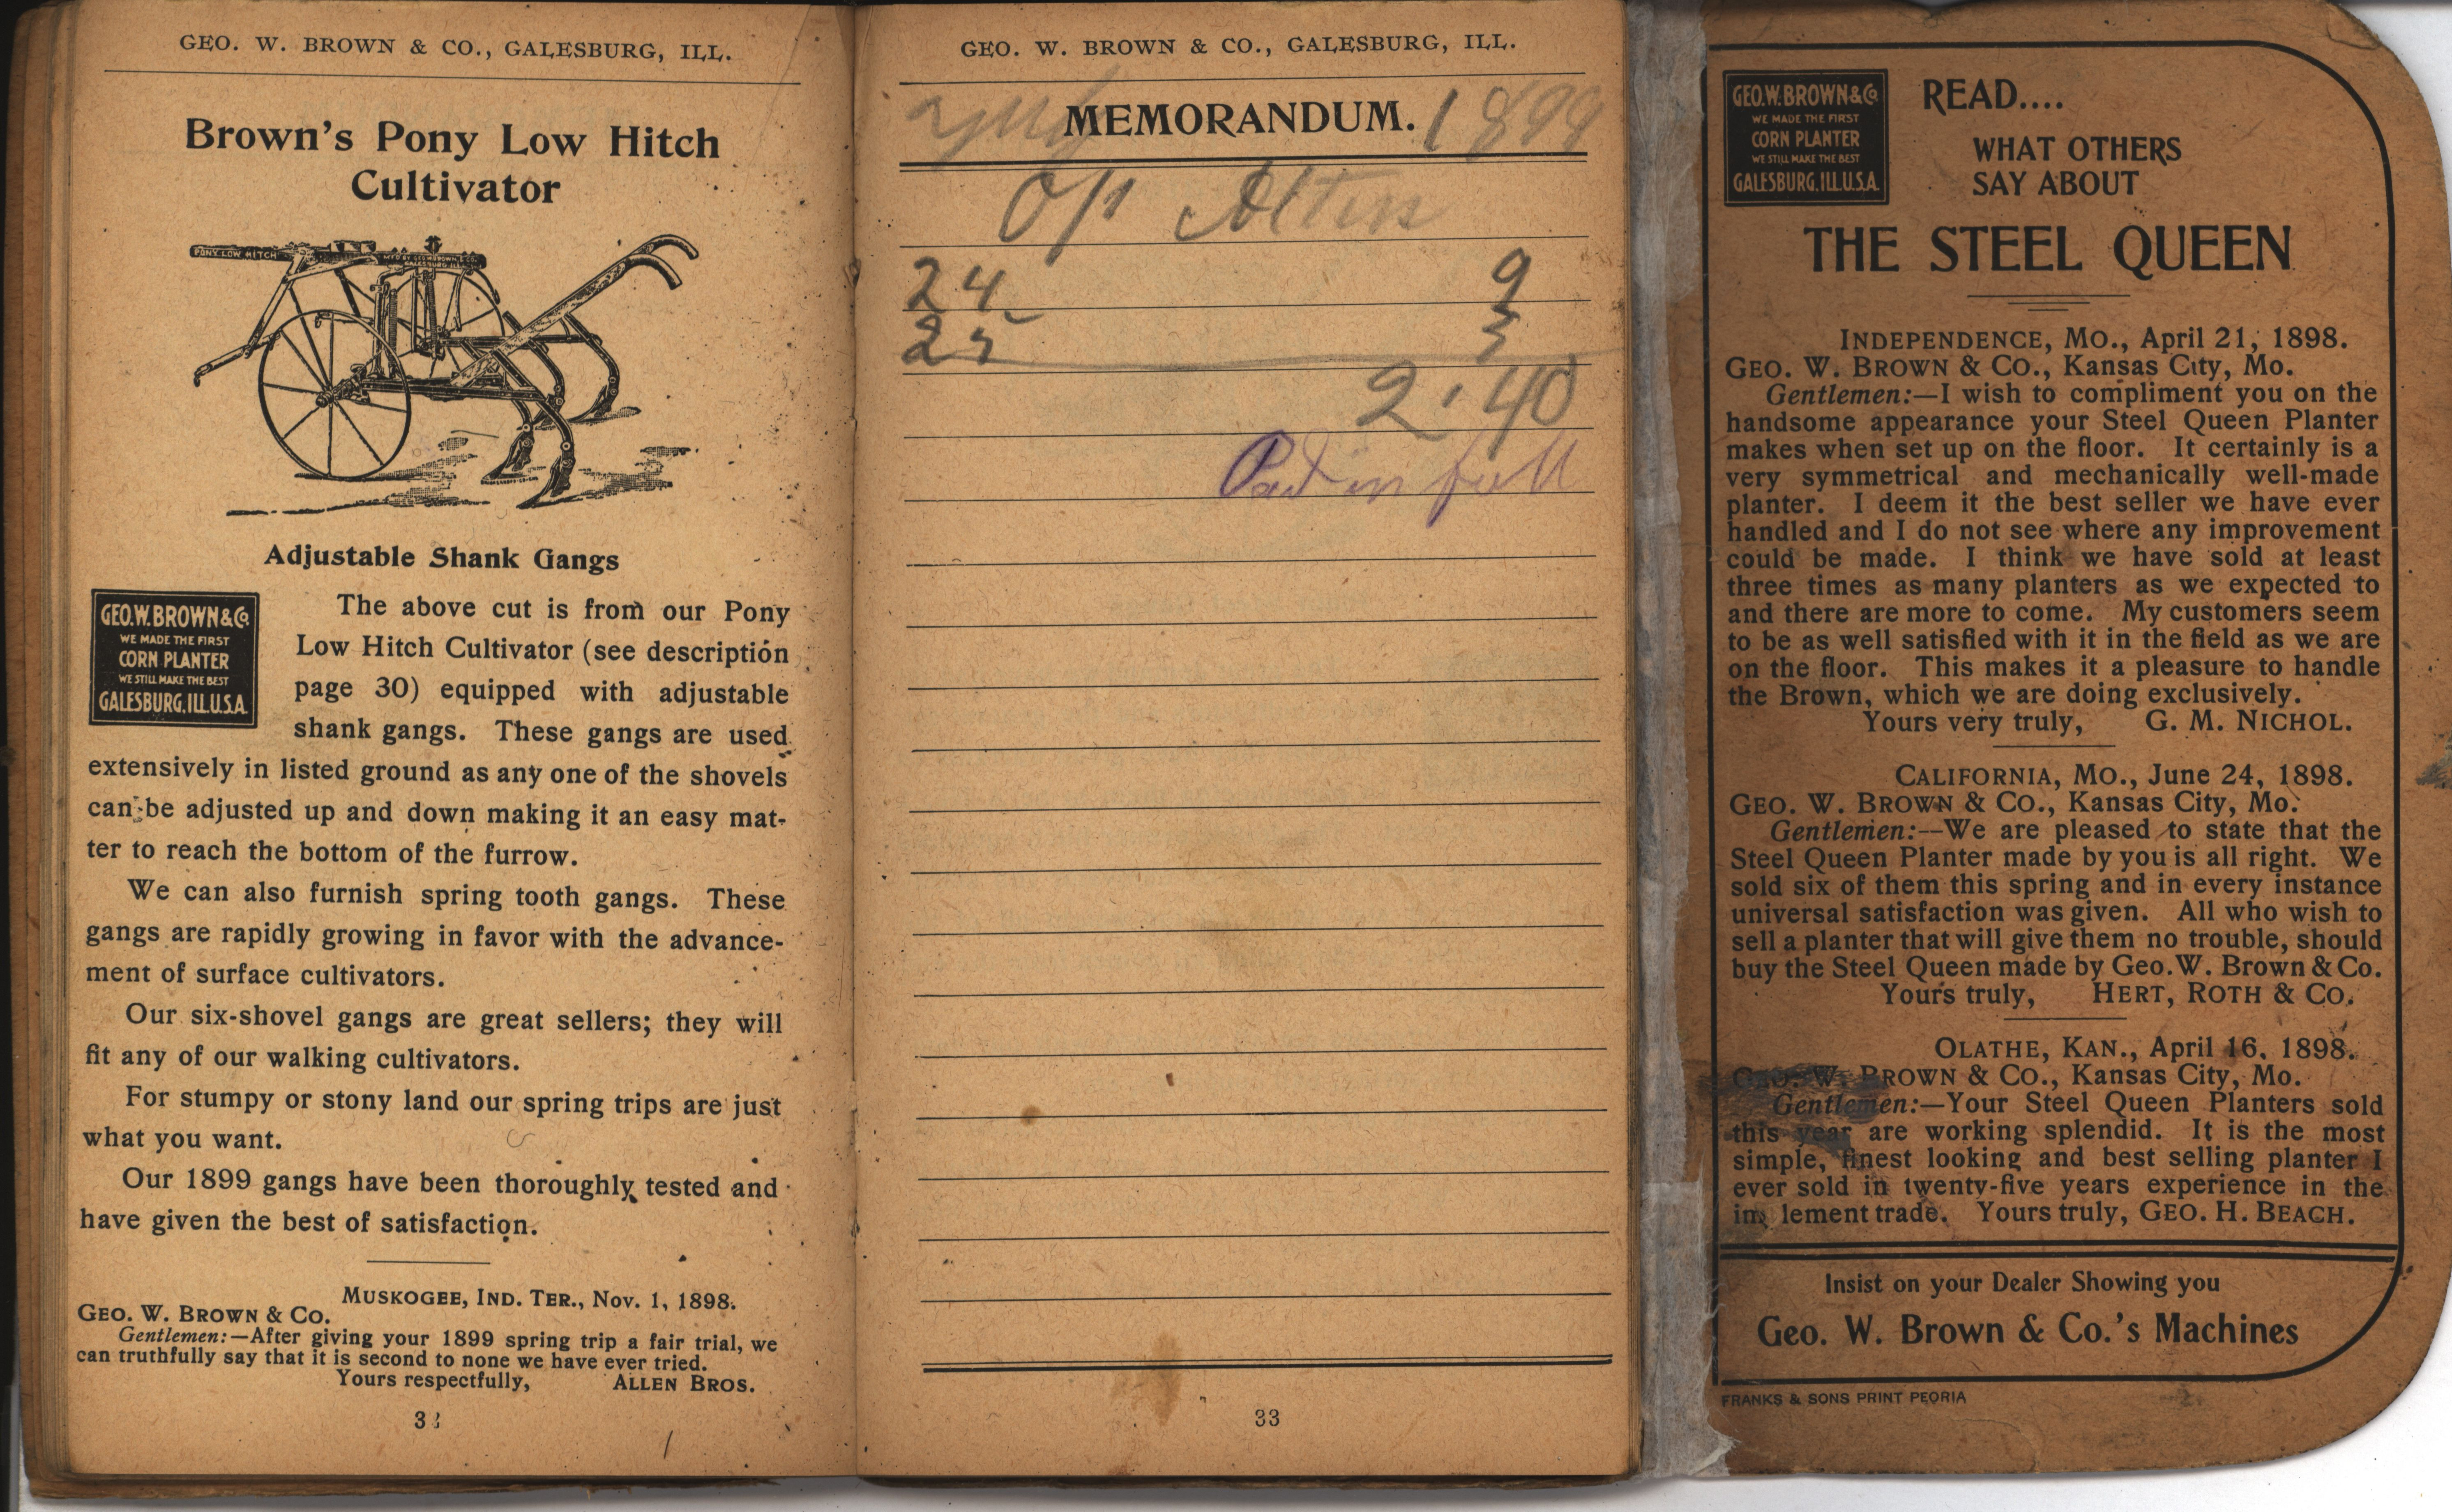 GEO. W. BROWN & CO., GALESBURG, ILL.
Brown's Pony Low Hitch
Cultivator
PONY LOW HITCH
Adjustable Shank Gangs
GEO. W. BROWN & Co.
WE MADE THE FIRST
CORN PLANTER
WE STILL MAKE THE BEST
GALESBURG, ILL. U.S.A.
The above cut is from our Pony
Low Hitch Cultivator (see description
page 30) equipped with adjustable
shank gangs. These gangs are used
extensively in listed ground as any one of the shovels
can be adjusted up and down making it an easy mat-
ter to reach the bottom of the furrow.
We can also furnish spring tooth gangs. These
gangs are rapidly growing in favor with the advance-
ment of surface cultivators.
Our six-shovel gangs are great sellers; they will
fit any of our walking cultivators.
For stumpy or stony land our spring trips are just
what you want.
Our 1899 gangs have been thoroughly tested and
have given the best of satisfaction.
MUSKOGEE, IND. TER., Nov. 1, 1898.
GEO. W. BROWN & CO.
Gentlemen:—After giving your 1899 spring trip a fair trial, we
can truthfully say that it is second to none we have ever tried.
Yours respectfully, ALLEN BROS.
GEO. W. BROWN & CO., GALESBURG, ILL.
July 1899
MEMORANDUM.
24 9
25
2.40
Pad in full
33
GEO. W. BROWN & Co.
WE MADE THE FIRST
CORN PLANTER
WE STILL MAKE THE BEST
GALESBURG, ILL. U.S.A.
READ....
WHAT OTHERS
SAY ABOUT
THE STEEL QUEEN
INDEPENDENCE, MO., April 21, 1898.
GEO. W. BROWN & CO., Kansas City, Mo.
Gentlemen:—I wish to compliment you on the
handsome appearance your Steel Queen Planter
makes when set up on the floor. It certainly is a
very symmetrical and mechanically well-made
planter. I deem it the best seller we have ever
handled and I do not see where any improvement
could be made. I think we have sold at least
three times as many planters as we expected to
and there are more to come. My customers seem
to be as well satisfied with it in the field as we are
on the floor. This makes it a pleasure to handle
the Brown, which we are doing exclusively.
Yours very truly, G. M. NICHOL.
CALIFORNIA, MO., June 24, 1898.
GEO. W. BROWN & CO., Kansas City, Mo.
Gentlemen:—We are pleased to state that the
Steel Queen Planter made by you is all right. We
sold six of them this spring and in every instance
universal satisfaction was given. All who wish to
sell a planter that will give them no trouble, should
buy the Steel Queen made by Geo. W. Brown & Co.
Yours truly, HERT, ROTH & CO.
OLATHE, KAN., April 16, 1898.
GEO. W. BROWN & CO., Kansas City, Mo.
Gentlemen:—Your Steel Queen Planters sold
this year are working splendid. It is the most
simple, finest looking and best selling planter I
ever sold in twenty-five years experience in the
implement trade. Yours truly, GEO. H. BEACH.
Insist on your Dealer Showing you
Geo. W. Brown & Co.'s Machines
FRANKS & SONS PRINT PEORIA